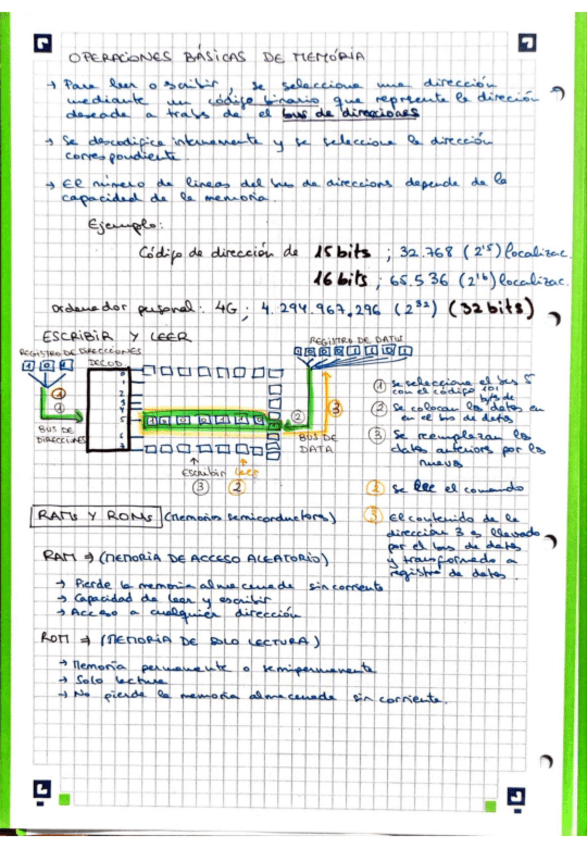 OPERACIONES BÁSICAS DE MEMÓRIA
→ Para leer o scribir, se selecciona una dirección
mediante un código binario que reprsente la direción
deseada a trabs de el bus de direciones
→ Se descodifica internamente y se selecciona la dirección
correspondiente.
→ El número de lineas del bus de direccions depende de la
capacidad de la memoria.
Ejemplo:
Código de dirección de 15 bits ; 32.768 (2^15) localizac.
16 bits ; 65.536 (2^16) localizac.
ordenador personal: 4G ; 4.294.967.296 (2^32) (32 bits)
ESCRIBIR Y LEER
REGISTRO DE DIRECCIONES
1 0 1
DECOD.
REGISTRO DE DATOS
BUS DE
DIRECCIONES
①
①
0
1
2
3
4
5
6
7
②
③
BUS DE
DATA
Escribir leer
③ ②
① Se selecciona el bus 5
con el código 101
② Se colocan los datos en
en el bus de datos
③ Se reemplazan los
datos anteriors por los
nuevos
② Se lee el comando
③ El contenido de la
dirección 3 es llevado
por el bus de datos
y transformado a
registre de datos.
RAMs Y ROMs (memorias semiconductors)
RAM ⇒ (MEMORIA DE ACCESO ALEATORIO)
→ Pierde la memoria almacenada sin corriente
→ Capacidad de leer y escribir
→ Acceso a cualquier dirección
ROM ⇒ (MEMORIA DE SOLO LECTURA)
→ Memoria permanente o semipermanente
→ Solo lectura
→ No pierde la memoria almacenada sin corriente.